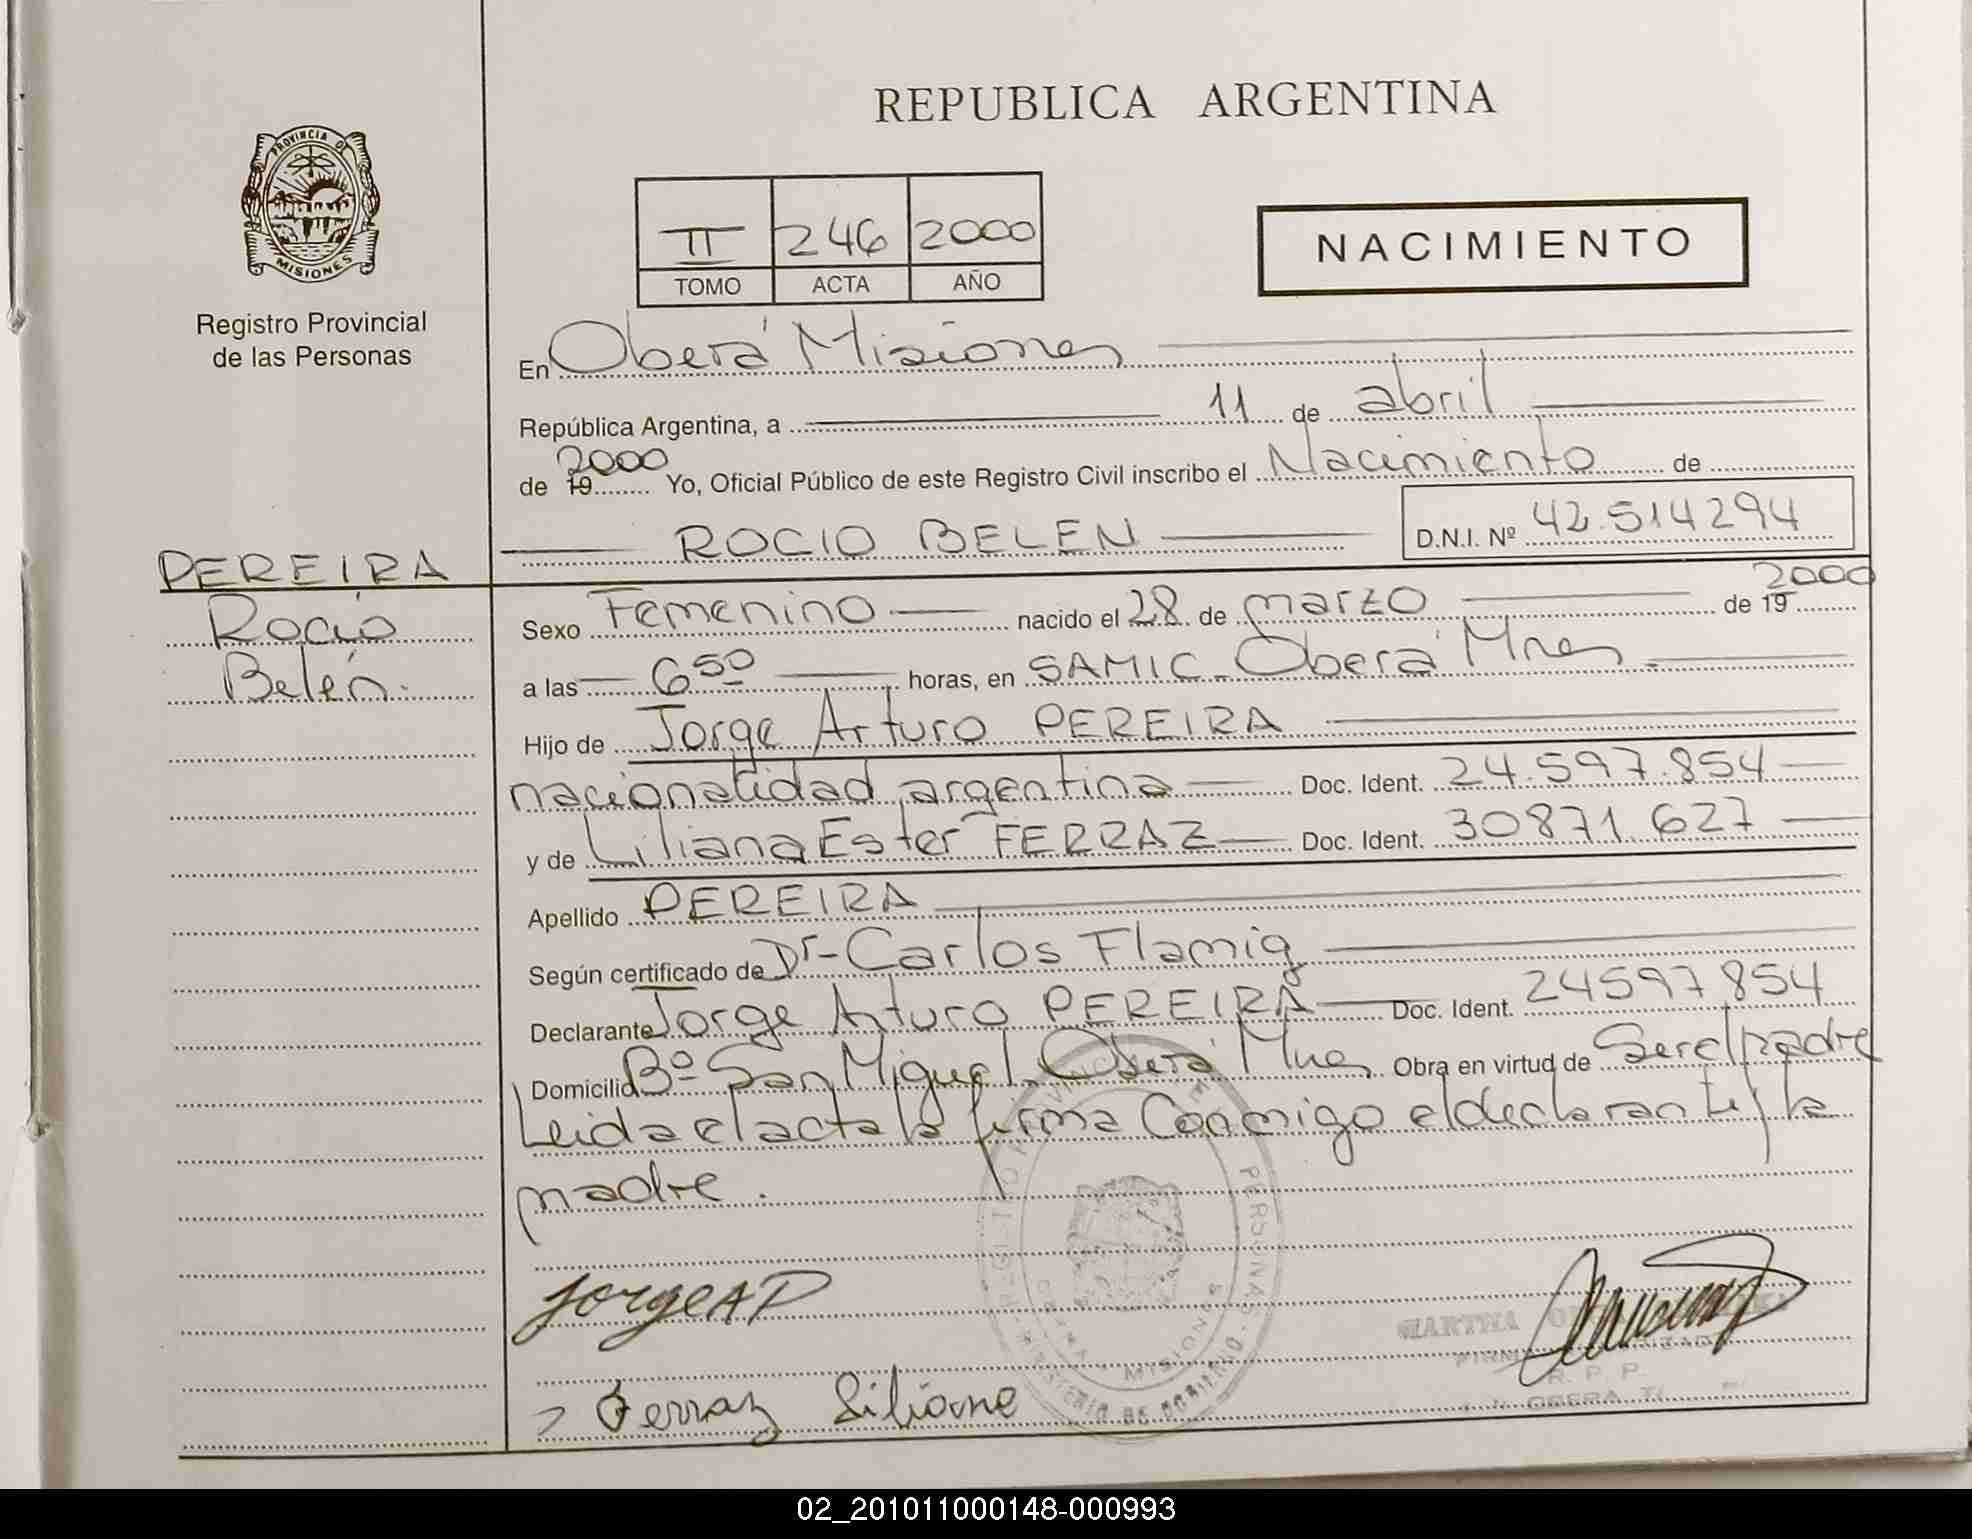 REPUBLICA ARGENTINA
PROVINCIA DE
MISIONES
Registro Provincial
de las Personas
II 246 2000
TOMO ACTA AÑO
NACIMIENTO
En Oberá Misiones
República Argentina, a 11 de abril
de 19 2000 Yo, Oficial Público de este Registro Civil inscribo el Nacimiento de
ROCIO BELEN D.N.I. Nº 42.514294
PEREIRA
Rocío
Belén.
Sexo Femenino nacido el 28 de marzo de 19 2000
a las 6 50 horas, en SAMIC. Oberá Mnes
Hijo de Jorge Arturo PEREIRA
nacionalidad argentina Doc. Ident. 24.597.854
y de Liliana Ester FERRAZ Doc. Ident. 30871.627
Apellido PEREIRA
Según certificado de Dr- Carlos Flamig
Declarante Jorge Arturo PEREIRA Doc. Ident. 24597854
Domicilio Bº San Miguel. Oberá Mnes Obra en virtud de Ser el padre
Leida el acta la firma Conmigo el declarante y la
madre.
JorgeAP
MARTHA
R. P. P.
OBERA
Ferraz Liliane
PERSONAS
MISIONES
MINISTERIO DE GOBIERNO
02_201011000148-000993